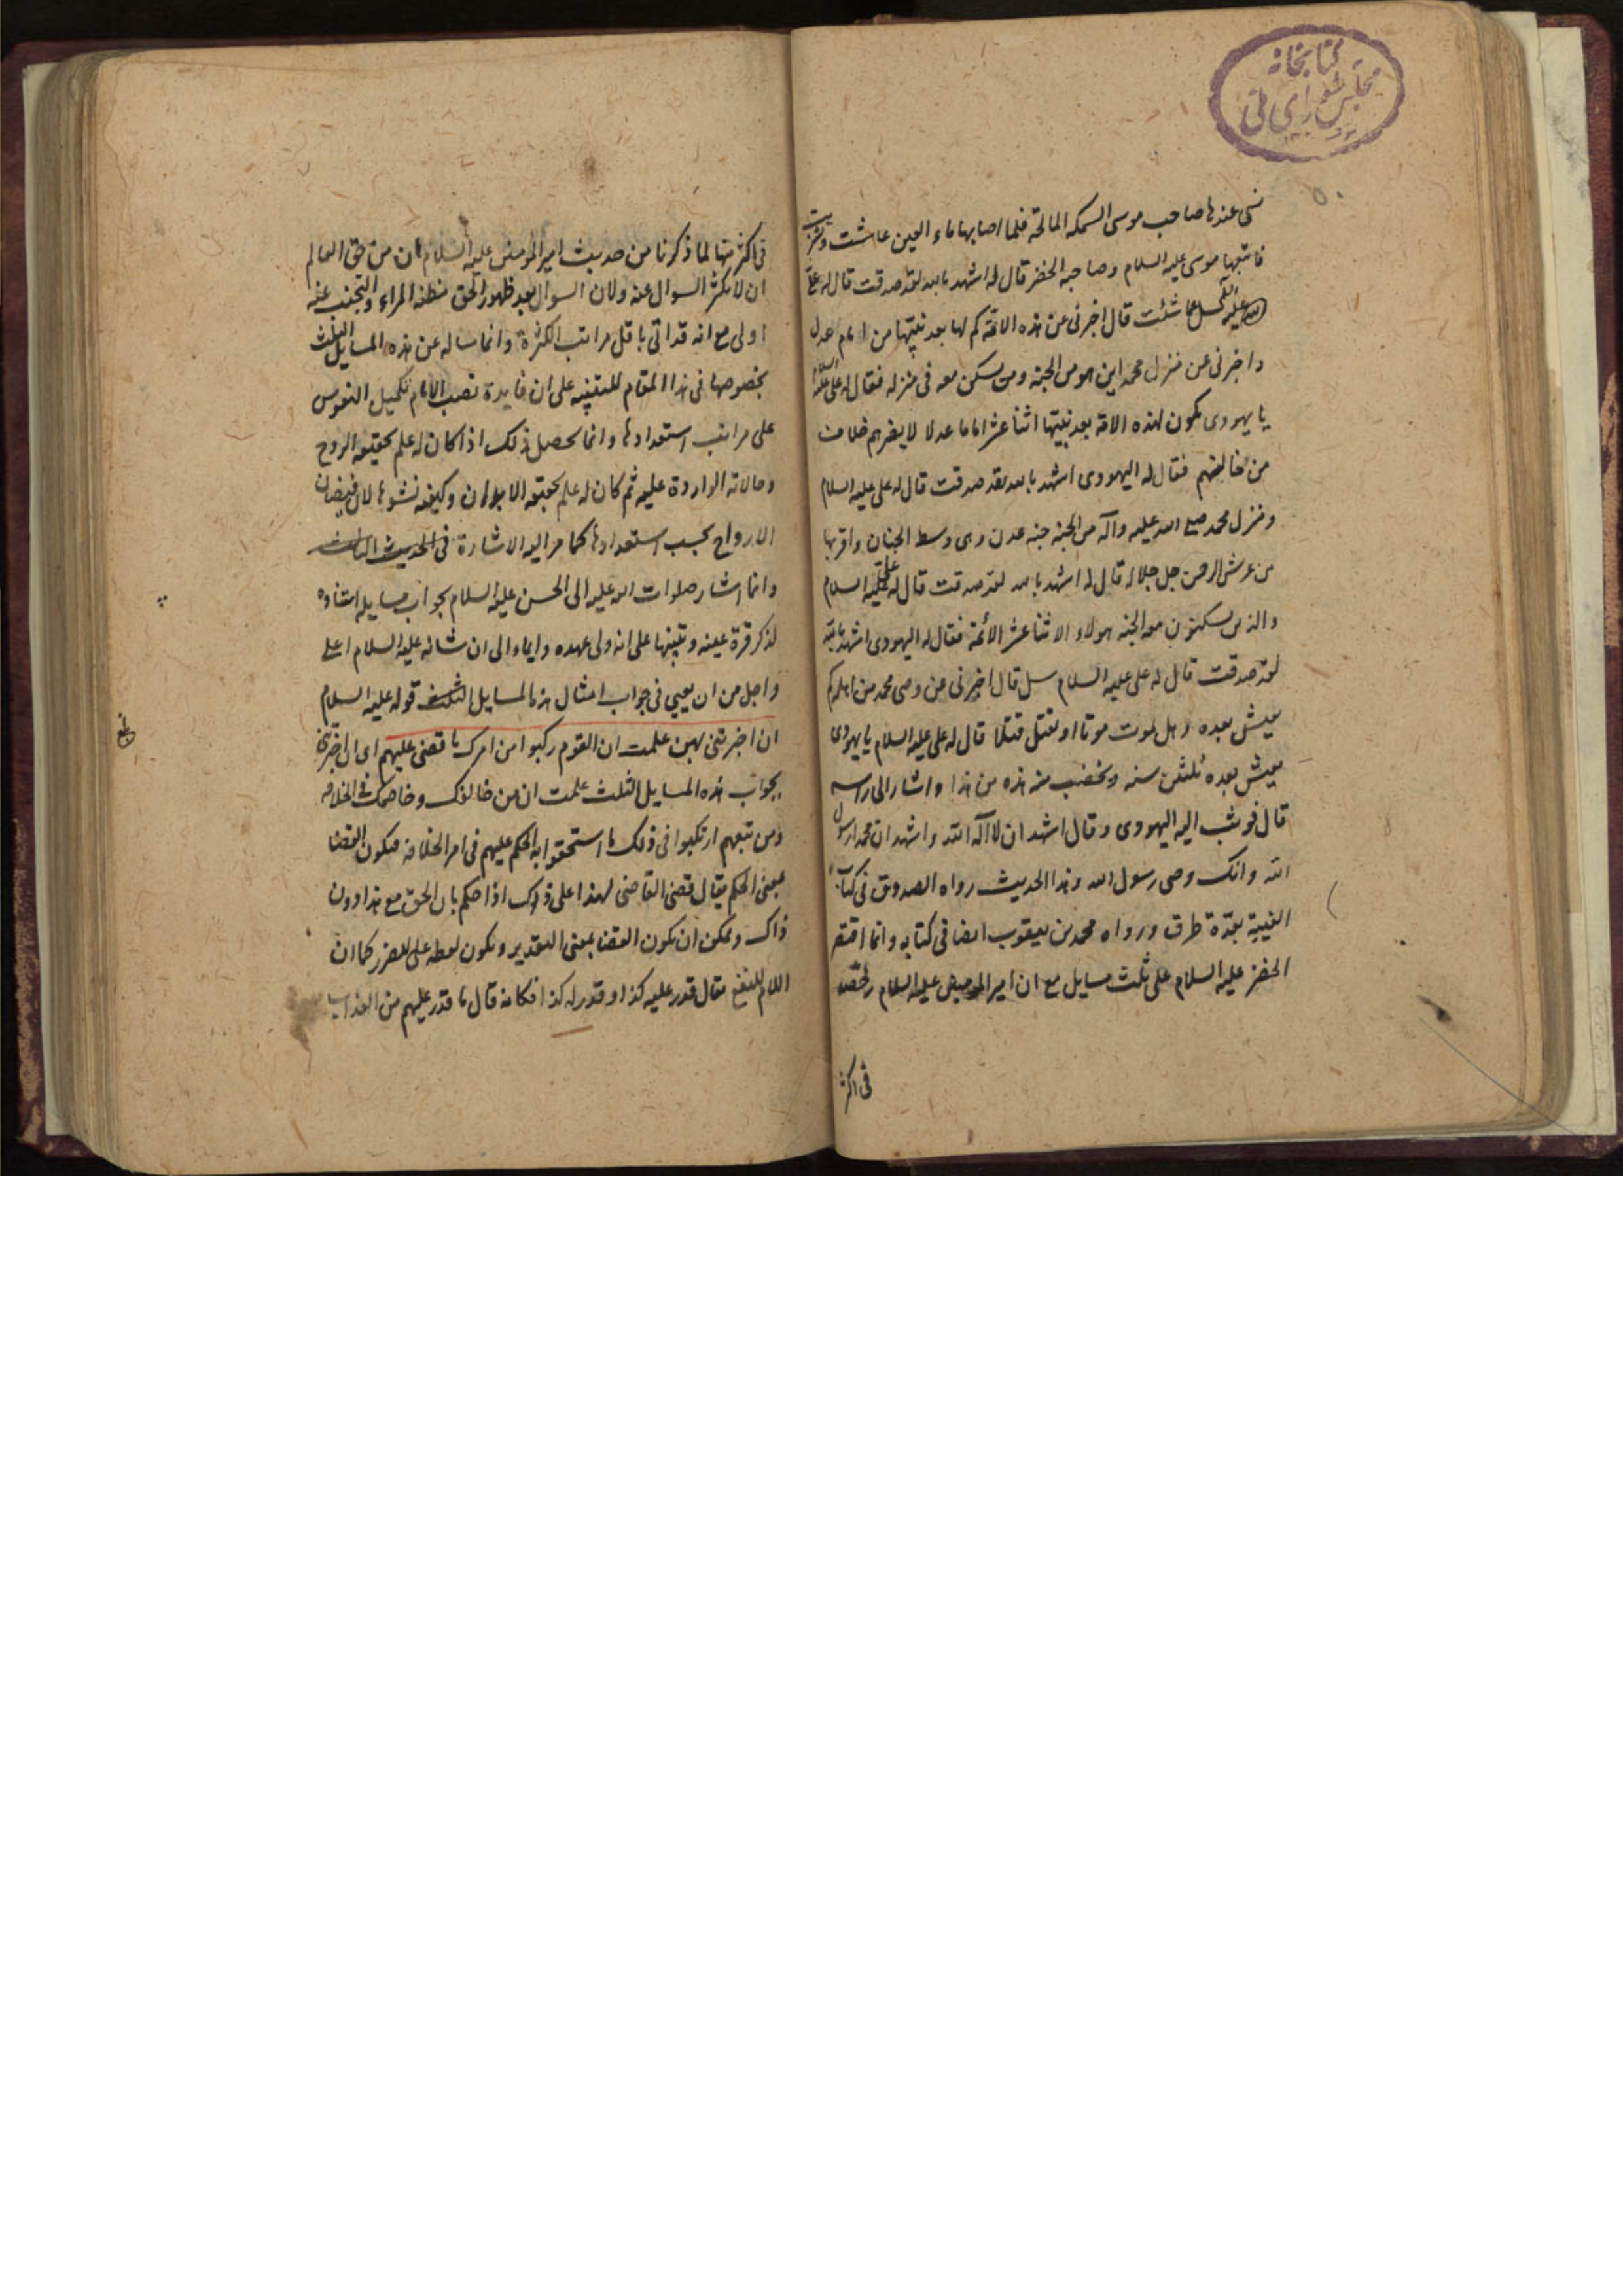 كتابخانه
مجلس شورای ملی
نسی عندها صاحب موسی السمكه المالحة فلما اصابها ماء العین عاشت وشربت
فاتبعها موسی علیه السلام وصاحبه الخضر قال له اشهد بالله لقد صدقت قال له علی
علیه السلام سل عما شئت قال اخبرنی عن هذه الامة كم لها بعد نبیها من امام عدل
واخبرنی عن منزل محمد این هو من الجنه ومن یسكن معه فی منزله فقال له علی علیه السلام
یا یهودی یكون لهذه الامة بعد نبیها اثنا عشر اماما عدلا لا یضرهم خلاف
من خالفهم فقال له الیهودی اشهد بالله لقد صدقت قال له علی علیه السلام
ومنزل محمد صلی الله علیه وآله من الجنه جنه عدن وهی وسط الجنان واقربها
من عرش الرحمن جل جلاله قال له اشهد بالله لقد صدقت قال له علی علیه السلام
والذین یسكنون معه الجنه هولاء الاثنا عشر الائمة فقال له الیهودی اشهد بالله
لقد صدقت قال له علی علیه السلام سل قال اخبرنی عن وصی محمد من اهله كم
یعیش بعده وهل یموت موتا او یقتل قتلا قال له علی علیه السلام یا یهودی
یعیش بعده ثلثین سنه ویخضب منه هذه من هذا واشار الی راسه
قال فوثب الیه الیهودی وقال اشهد ان لا اله الا الله واشهد ان محمدا رسول
الله وانك وصی رسول الله وهذا الحدیث رواه الصدوق فی كتاب
الغیبة بعدة طرق ورواه محمد بن یعقوب ایضا فی كتابه وانما اقتصر
الخضر علیه السلام علی ثلث مسایل مع ان امیر المومنین علیه السلام رخصه
فی اكثر
فی اكثر منها لما ذكرنا من حدیث امیر المومنین علیه السلام ان من حق العالم
ان لا یكثر السوال عنه ولان السوال بعد ظهور الحق مظنه المراء والتجنب عنه
اولی مع انه قد اتی باقل مراتب الكثرة وانما ساله عن هذه المسایل الثلث
بخصوصها فی هذا المقام للتنبیه علی ان فایدة نصب الامام تكمیل النفوس
علی مراتب استعدادها وانما یحصل ذلك اذا كان له علم بحقیقه الروح
وحالاته الواردة علیه ثم كان له علم بحقیقه الابدان وكیفیه نشوها لان فیضان
الارواح بحسب استعدادها كما مر الیه الاشارة فی الحدیث الثالث
وانما اشار صلوات الله علیه الی الحسن علیه السلام بجواب مسایله استفاده
لذكر قرة عینه وتنبیها علی انه ولی عهده وایماء الی ان شانه علیه السلام اعلی
واجل من ان یعیی فی جواب امثال هذه المسایل الثلث قوله علیه السلام
ان اخبرتنی بهن علمت ان القوم ركبوا من امرك ما قضی علیهم ای ان اخبرتنی
بجواب هذه المسایل الثلث علمت ان من خالفك وخاصمك فی الخلافه
ومن تبعهم ارتكبوا فی ذلك ما استحقوا به الحكم علیهم فی امر الخلافه فیكون القضا
بمعنی الحكم یقال قضی القاضی لهذا علی ذاك اذا حكم بان الحق مع هذا دون
ذاك ویمكن ان یكون القضا بمعنی التقدیر ویكون لفظه علی للضرر كما ان
اللام للنفع یقال قدر علیه كذا وقدر له كذا فكانه قال ما قدر علیهم من العذاب